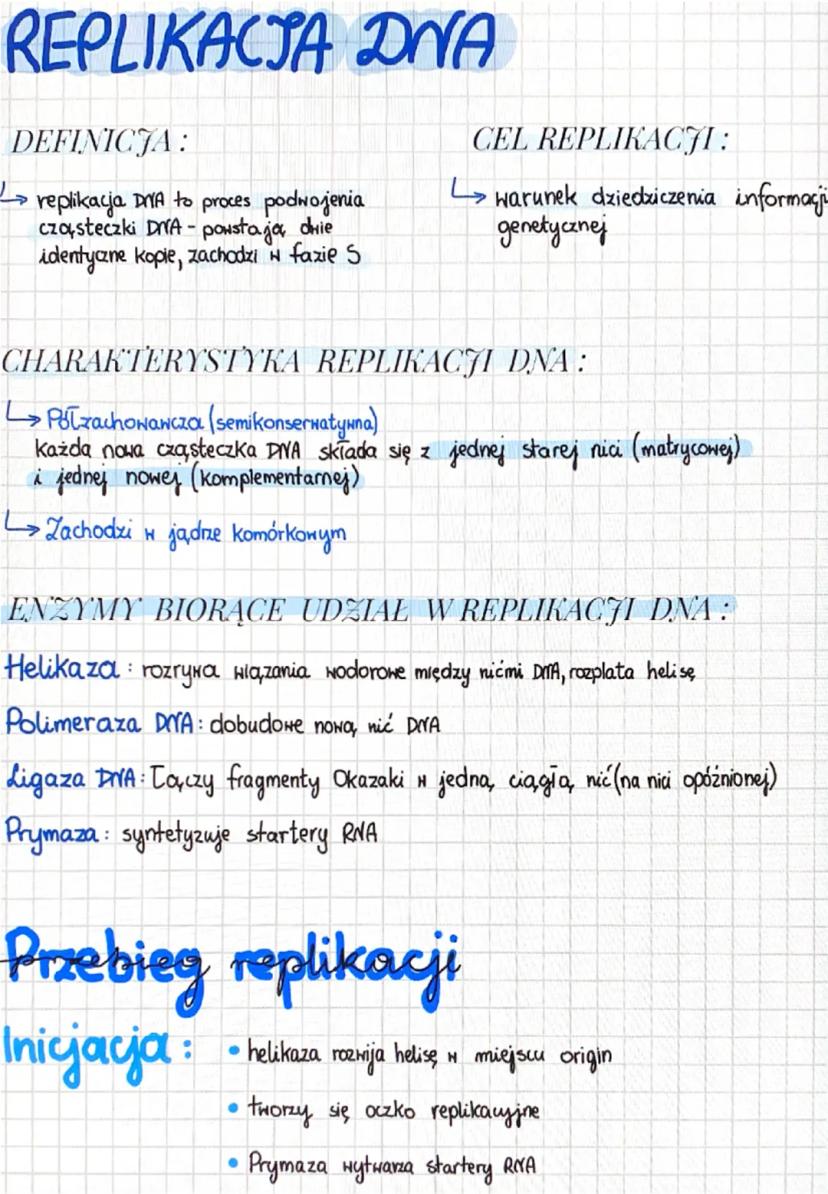 REPLIKACJA DNA
DEFINICJA:
↳ replikacja DNA to proces podwojenia
cząsteczki DNA - powstają dwie
identyczne kopie, zachodzi w fazie S
CEL REPLIKACJI:
↳ warunek dziedziczenia informacji
genetycznej
CHARAKTERYSTYKA REPLIKACJI DNA:
↳ Półzachowawcza (semikonserwatywna)
Każda nowa cząsteczka DNA składa się z jednej starej nici (matrycowej)
i jednej nowej (komplementarnej)
↳ Zachodzi w jądrze komórkowym
ENZYMY BIORĄCE UDZIAŁ W REPLIKACJI DNA:
Helikaza: rozrywa wiązania wodorowe między nićmi DNA, rozplata helisę
Polimeraza DNA: dobudowe nową nić DNA
Ligaza DNA: Łączy fragmenty Okazaki w jedną ciągłą nić (na nici opóźnionej)
Prymaza: syntetyzuje startery RNA
Przebieg replikacji
Inicjacja:
• helikaza rozwija helisę w miejscu origin
• tworzy się oczko replikacyjne
• Prymaza wytwarza startery RNA